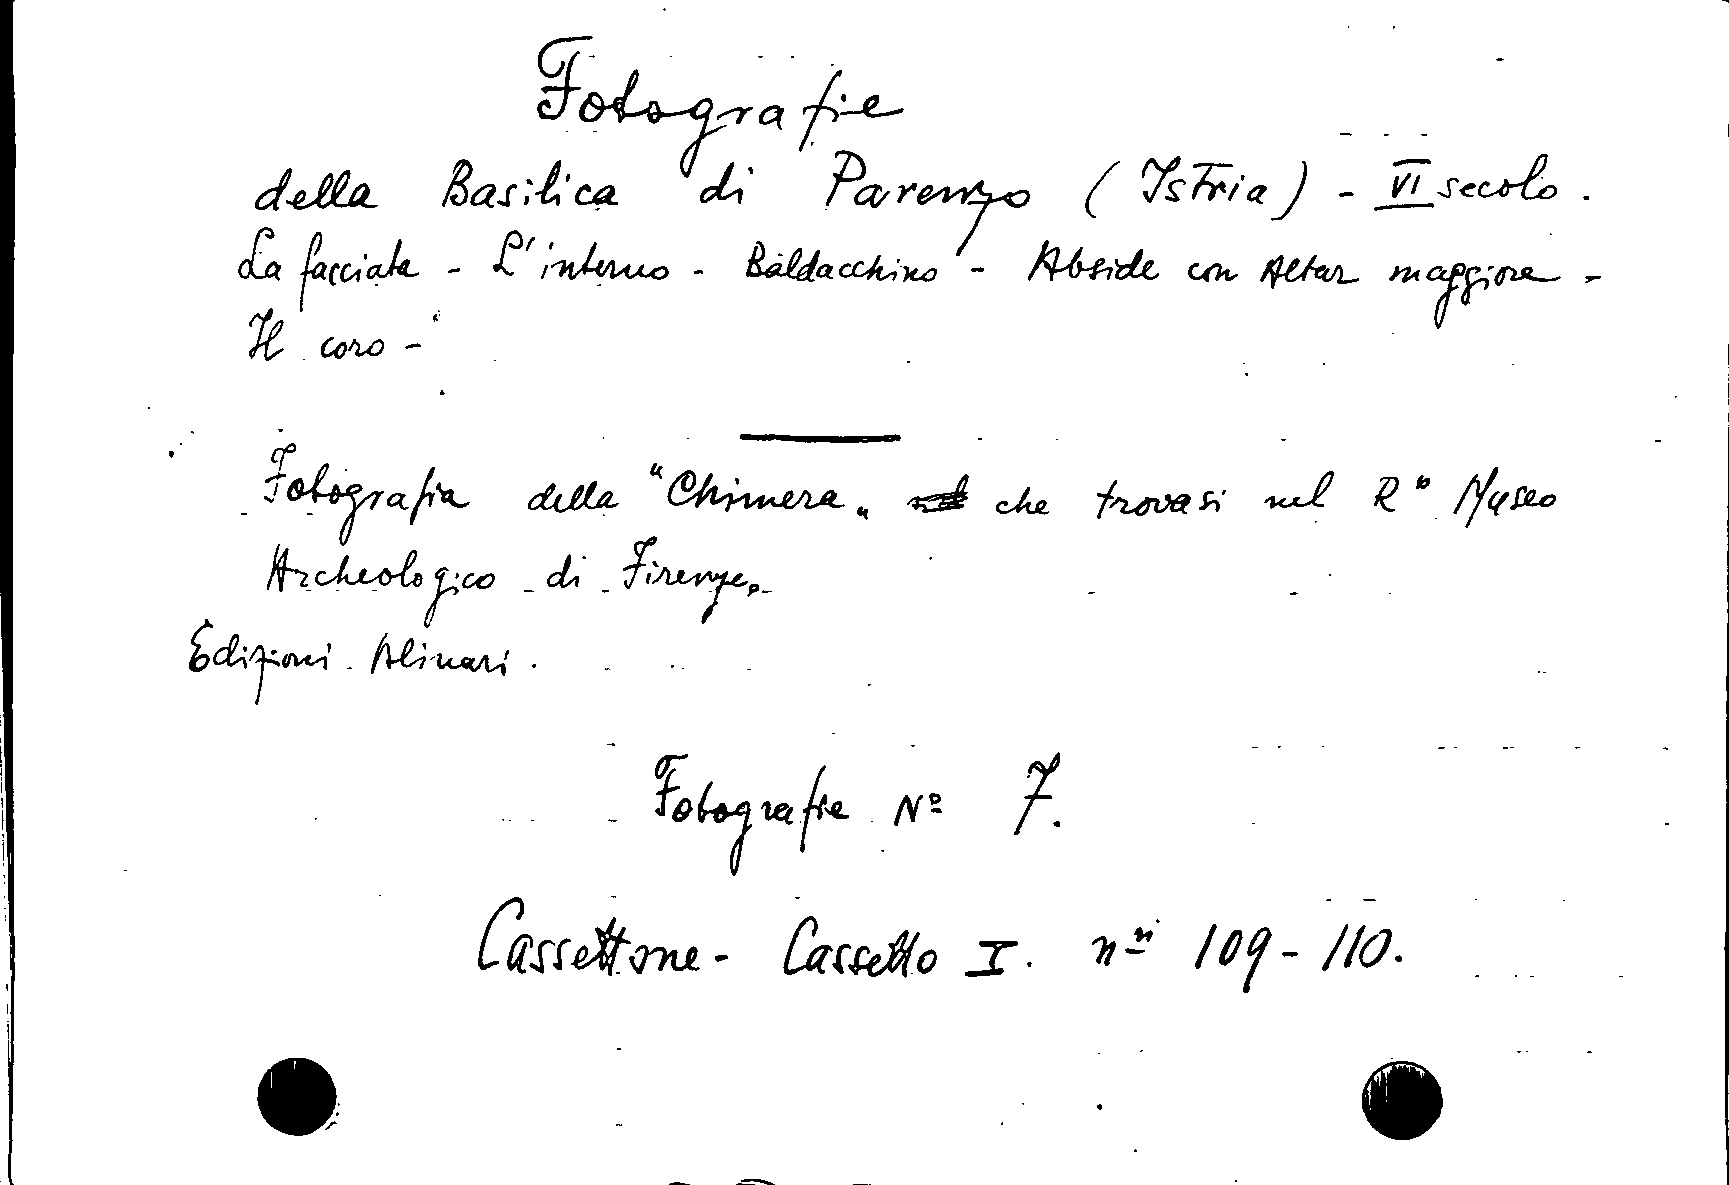 Fotografie
della Basilica di Parenzo (Istria) - VI secolo.
La facciata - L'interno - Baldacchino - Abside con Altar maggiore -
Il coro -
Fotografia della "Chimera" che trovasi nel R° Museo
Archeologico di Firenze.
Edizioni Alinari.
Fotografie Nº 7.
Cassettone - Cassetto I. nⁿⁱ 109 - 110.